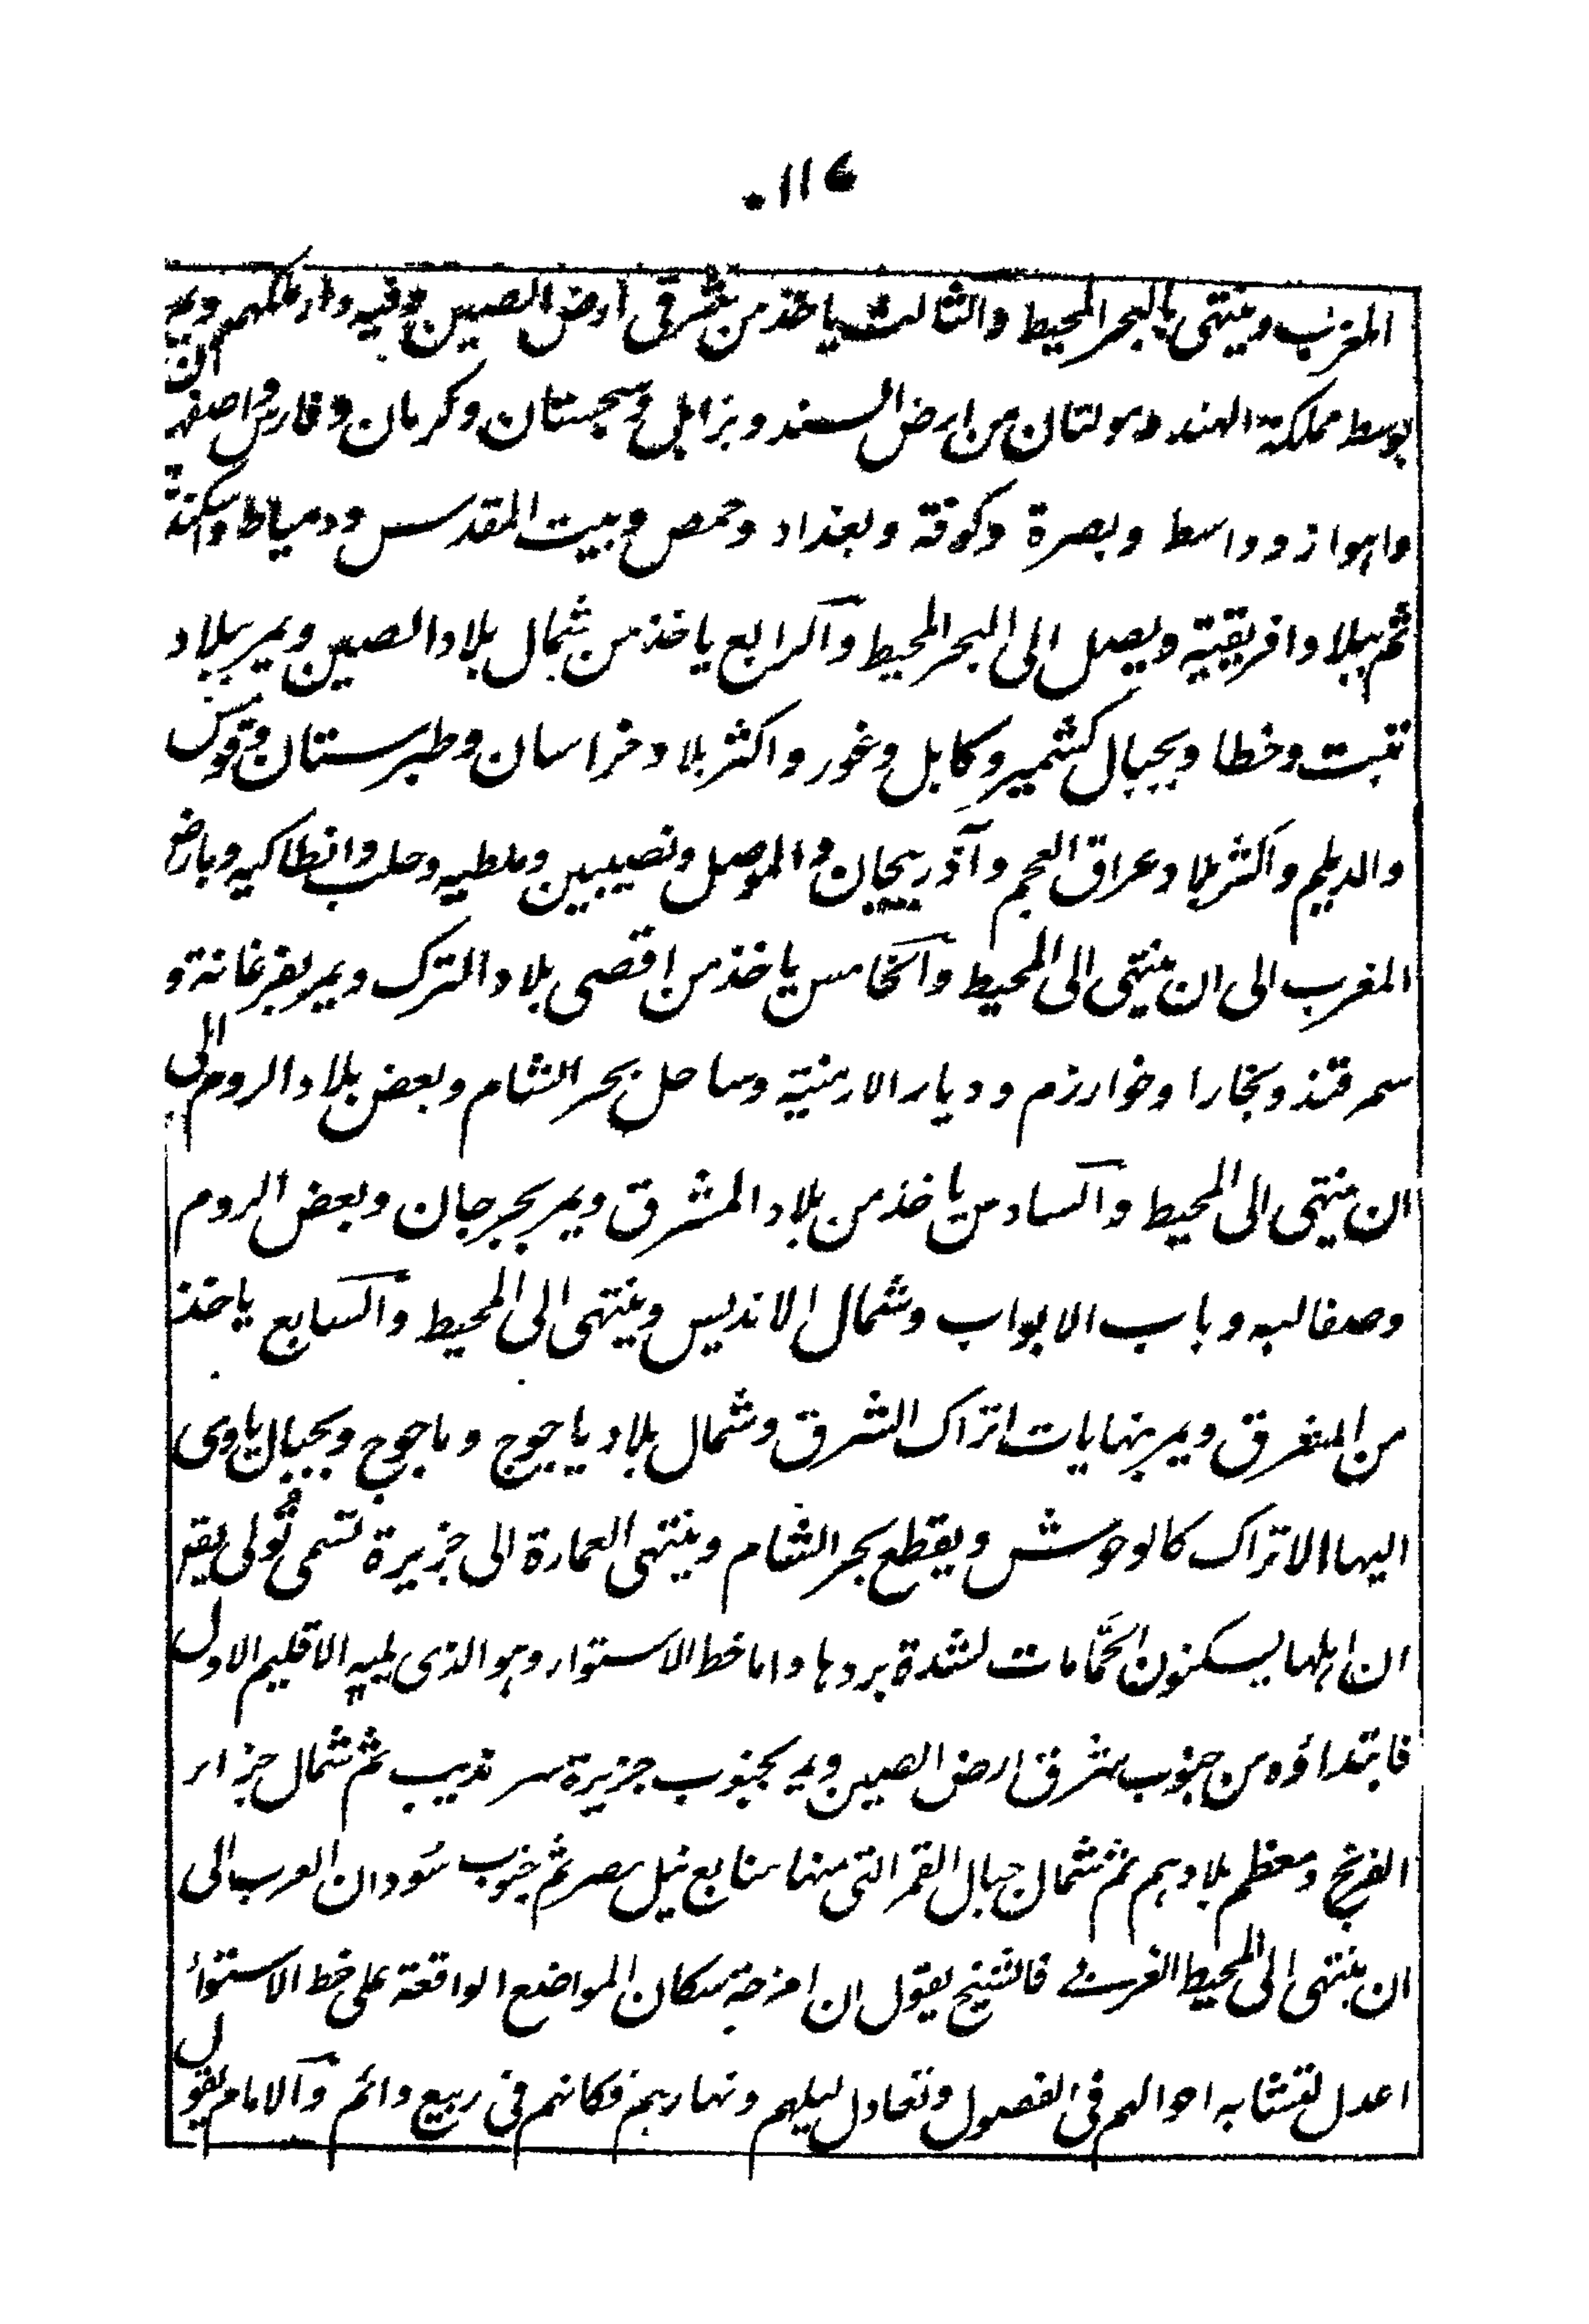 ١١٤
المغرب وينتهى بالبحر المحيط والثالث ياخذ من شرقى ارض الصين وفيه دار ملكهم ويمر
بوسط مملكة الهند ومولتان من ارض السند وبزابل وسجستان وكرمان وفارس واصفهان
واهواز وواسط وبصرة وكوفة وبغداد وحمص وبيت المقدس ودمياط واسكندرية
ثم ببلاد افريقية ويصل الى البحر المحيط والرابع ياخذ من شمال بلاد الصين ويمر ببلاد
تبت وخطا وبجبال كشمير وكابل وغور واكثر بلاد خراسان وطبرستان وقومس
والديلم واكثر بلاد عراق العجم وآذربيجان والموصل ونصيبين وملطيه وحلب وانطاكيه وبارض
المغرب الى ان ينتهى الى المحيط والخامس ياخذ من اقصى بلاد الترك ويمر بفرغانة و
سمرقند وبخارا وخوارزم وديار الارمنية وساحل بحر الشام وبعض بلاد الروم الى
ان ينتهى الى المحيط والسادس ياخذ من بلاد المشرق ويمر بجرجان وبعض الروم
وصقالبه وباب الابواب وشمال الاندلس وينتهى الى المحيط والسابع ياخذ
من المشرق ويمر بنهايات اتراك الشرق وشمال بلاد ياجوج وماجوج وبجبال ياوى
اليها الاتراك كالوحوش ويقطع بحر الشام وينتهى العمارة الى جزيرة تسمى تُولى يقال
ان اهلها يسكنون الحمّامات لشدة بردها واما خط الاستواء وهو الذى يليه الاقليم الاول
فابتداؤه من جنوب شرق ارض الصين ويمر بجنوب جزيرة سرنديب ثم شمال جزائر
الفرنج ومعظم بلادهم ثم شمال جبال القمر التى منها منابع نيل مصر ثم جنوب سُودان العرب الى
ان ينتهى الى المحيط الغربى فالشيخ يقول ان امزجة سكان المواضع الواقعة على خط الاستواء
اعدل لتشابه احوالهم فى الفصول وتعادل ليلهم ونهارهم فكانهم فى ربيع دائم والامام يقول